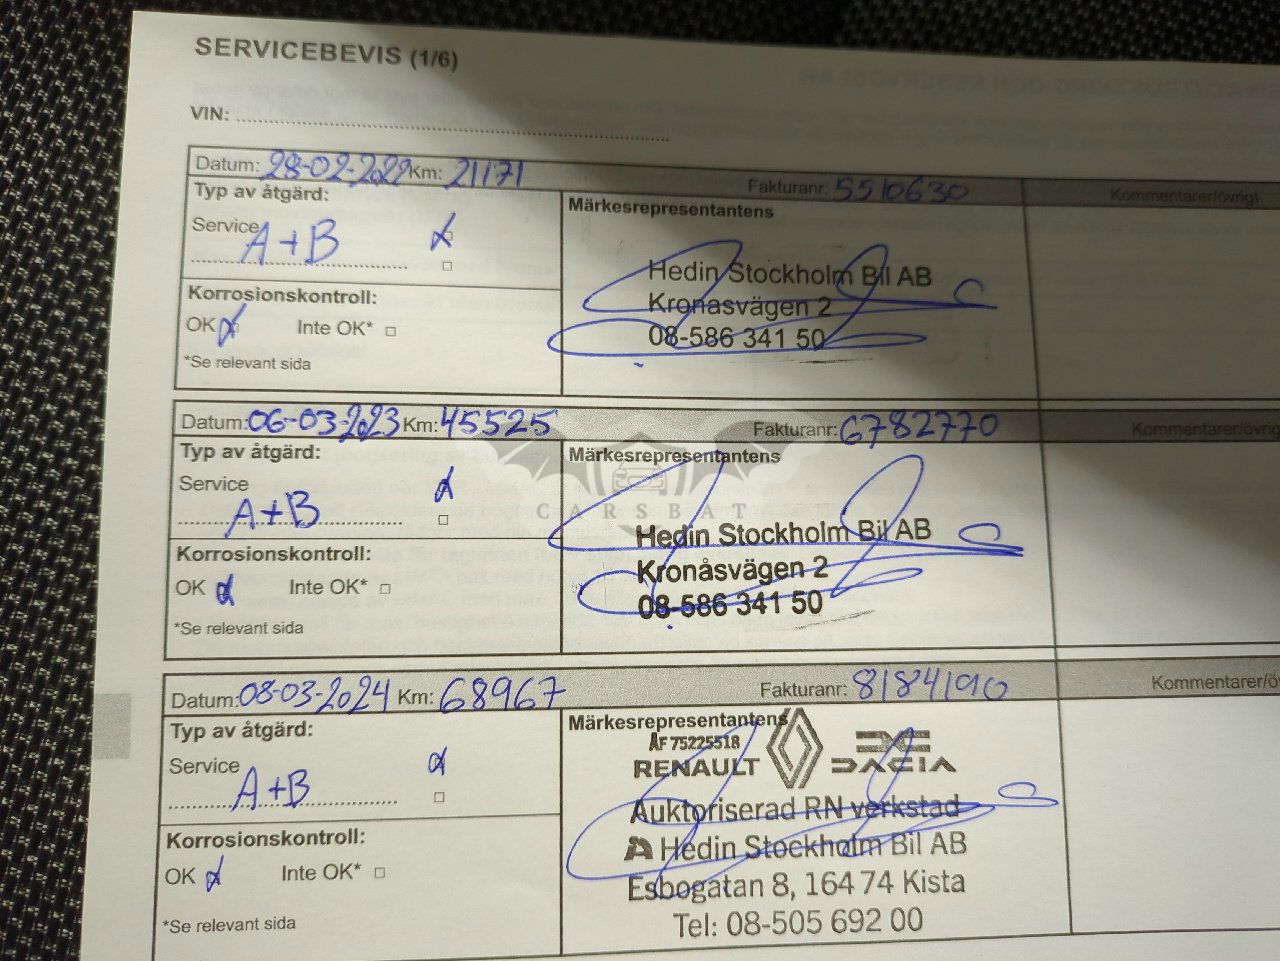 SERVICEBEVIS (1/6)
VIN:
Datum: 28-02-2022 Km: 21171 Fakturanr: 5510630 Kommentarer/övrigt
Typ av åtgärd:
Märkesrepresentantens
Service
A+B
Hedin Stockholm Bil AB
Korrosionskontroll:
Kronasvägen 2
OK Inte OK*
08-586 341 50
*Se relevant sida
Datum: 06-03-2023 Km: 45525 Fakturanr: 6782770 Kommentarer/övrig
Typ av åtgärd:
Märkesrepresentantens
Service
CARSBAT
A+B
Hedin Stockholm Bil AB
Korrosionskontroll:
Kronåsvägen 2
OK Inte OK*
08-586 341 50
*Se relevant sida
Datum: 08-03-2024 Km: 68967 Fakturanr: 8184190 Kommentarer/öv
Typ av åtgärd:
Märkesrepresentantens
ÅF 75225518
Service
RENAULT DACIA
A+B
Auktoriserad RN verkstad
Korrosionskontroll:
Hedin Stockholm Bil AB
OK Inte OK*
Esbogatan 8, 164 74 Kista
*Se relevant sida
Tel: 08-505 692 00